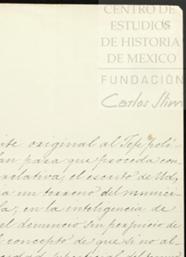 CENTRO DE
ESTUDIOS
DE HISTORIA
DE MEXICO
FUNDACIÓN
Carlos Slim
original al Jefe polí-
para que proceda con
relativa, el escrito de Ud,
un terreno del munici-
en la inteligencia de
el denuncio sin perjuicio de
concepto de que si no al-